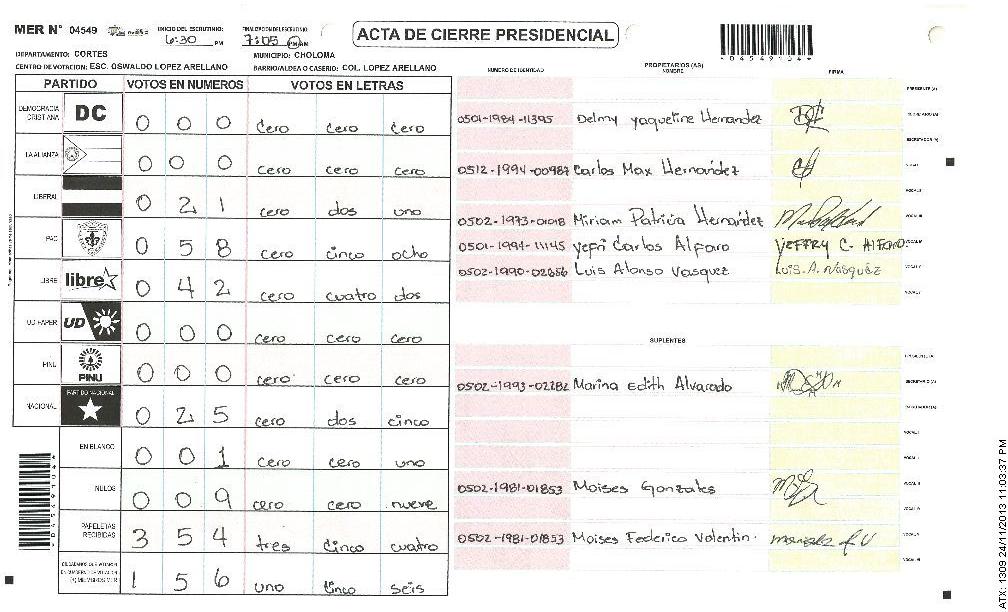 MER N° 04549
INICIO DEL ESCRUTINIO:
6:30 PM
FINALIZACION DEL ESCRUTINIO:
7:05 PM AM
ACTA DE CIERRE PRESIDENCIAL
DEPARTAMENTO: CORTES
MUNICIPIO: CHOLOMA
CENTRO DE VOTACION: ESC. OSWALDO LOPEZ ARELLANO
BARRIO/ALDEA O CASERIO: COL. LOPEZ ARELLANO
PARTIDO VOTOS EN NUMEROS VOTOS EN LETRAS
DEMOCRACIA CRISTIANA DC 0 0 0 cero cero cero
LA ALIANZA 0 0 0 cero cero cero
LIBERAL 0 2 1 cero dos uno
PAC 0 5 8 cero cinco ocho
LIBRE libre 0 4 2 cero cuatro dos
UD FAPER UD 0 0 0 cero cero cero
PINU PINU 0 0 0 cero cero cero
NACIONAL PARTIDO NACIONAL 0 2 5 cero dos cinco
EN BLANCO 0 0 1 cero cero uno
NULOS 0 0 9 cero cero nueve
PAPELETAS RECIBIDAS 3 5 4 tres cinco cuatro
CIUDADANOS QUE VOTARON EN CUADERNO DE VOTACION (+) MIEMBROS MER 1 5 6 uno cinco seis
*04549104*
NUMERO DE IDENTIDAD
PROPIETARIOS (AS)
NOMBRE
FIRMA
PRESIDENTE (A)
0501-1984-11395 Delmy yaqueline Hernandez
SECRETARIO (A)
ESCRUTADOR (A)
0512-1994-00987 Carlos Max Hernandez
VOCAL I
VOCAL II
0502-1973-01018 Miriam Patricia Hernandez
VOCAL III
0501-1994-11145 yefri Carlos Alfaro YEFFRY C. Alfaro
VOCAL IV
0502-1990-02656 Luis Alonso Vasquez Luis. A. Vasquez
VOCAL V
SUPLENTES
PRESIDENTE (A)
0502-1993-02282 Marina Edith Alvarado
SECRETARIO (A)
ESCRUTADOR (A)
VOCAL I
VOCAL II
0502-1981-01853 Moises Gonzales
VOCAL III
VOCAL IV
0502-1981-01853 Moises Federico Valentin.
VOCAL V
*04549104*
ATX: 1309 24/11/2013 11:03:37 PM